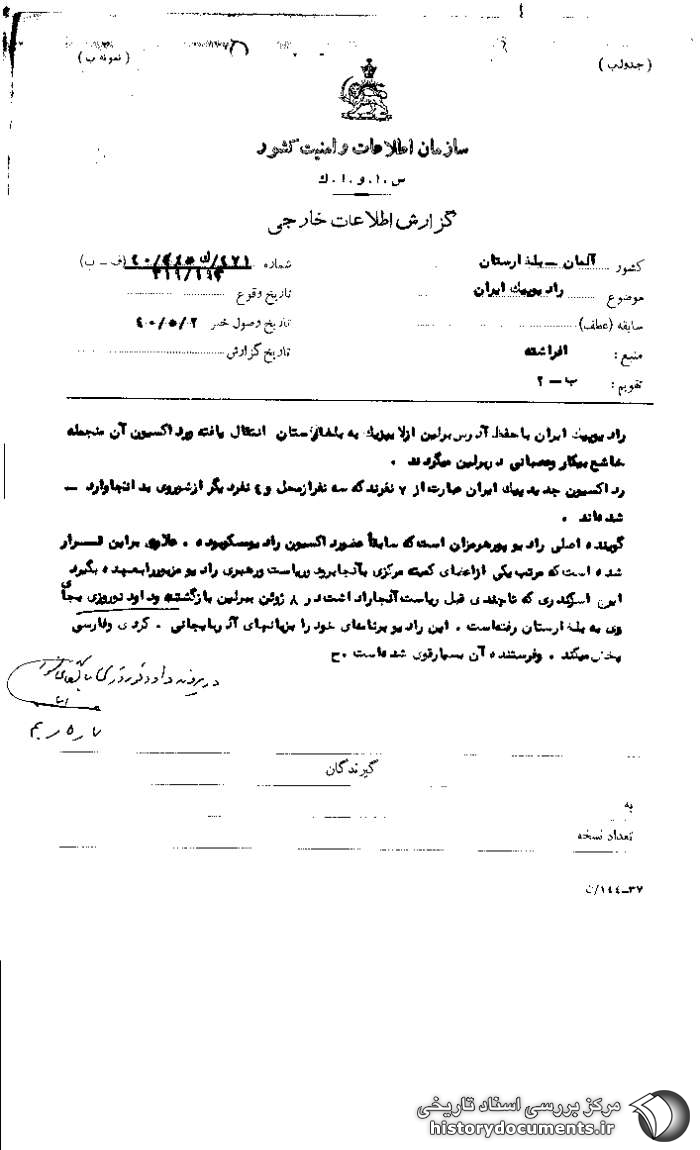 ( جدولب )
( نمونه ب )
سازمان اطلاعات و امنیت کشور
س . ا . و . ا . ك
گزارش اطلاعات خارجی
کشور آلمان – بلغارستان
شماره (ف – ب)
۳۱۶/۱۹۳
موضوع رادیو پیك ایران
تاریخ وقوع
سابقه (عطف)
تاریخ وصول خبر ۴۰/۵/۰۲
منبع : افراشته
تاریخ گزارش
تقویم : ب – ۲
رادیو پیك ایران با حفظ آدرس برلین از لایپزیك به بلغارستان انتقال یافته ورداکسیون آن منجمله
خاشع بیکار وعصبانی دربرلین میگردند .
رداکسیون جدید پیك ایران عبارت از ۷ نفرند که سه نفرازمحل و ۴ نفردیگر ازشوروی بدانجاوارد –
شده‌اند .
گوینده اصلی رادیو پورهرمزان است که سابقاً عضورداکسیون رادیومسکوبوده . علاوه براین قرار
شده است که مرتب یکی ازاعضای کمیته مرکزی بآنجابرود وریاست ورهبری رادیو مزبوررابعهده بگیرد
ایرج اسکندری که تاچندی قبل ریاست آنجاراداشت در ۸ ژوئن ببرلین بازگشته وداود نوروزی بجای
وی به بلغارستان رفته‌است . این رادیو برنامه‌های خود را بزبانهای آذربایجانی . کردی وفارسی
پخش میکند . وفرستنده آن بسیارقوی شده‌است . ح
در پرونده داود نوروزی بایگانی شود
گیرندگان
به
تعداد نسخه
۳۷–۱۴۴/ن
مرکز بررسی اسناد تاریخی
historydocuments.ir